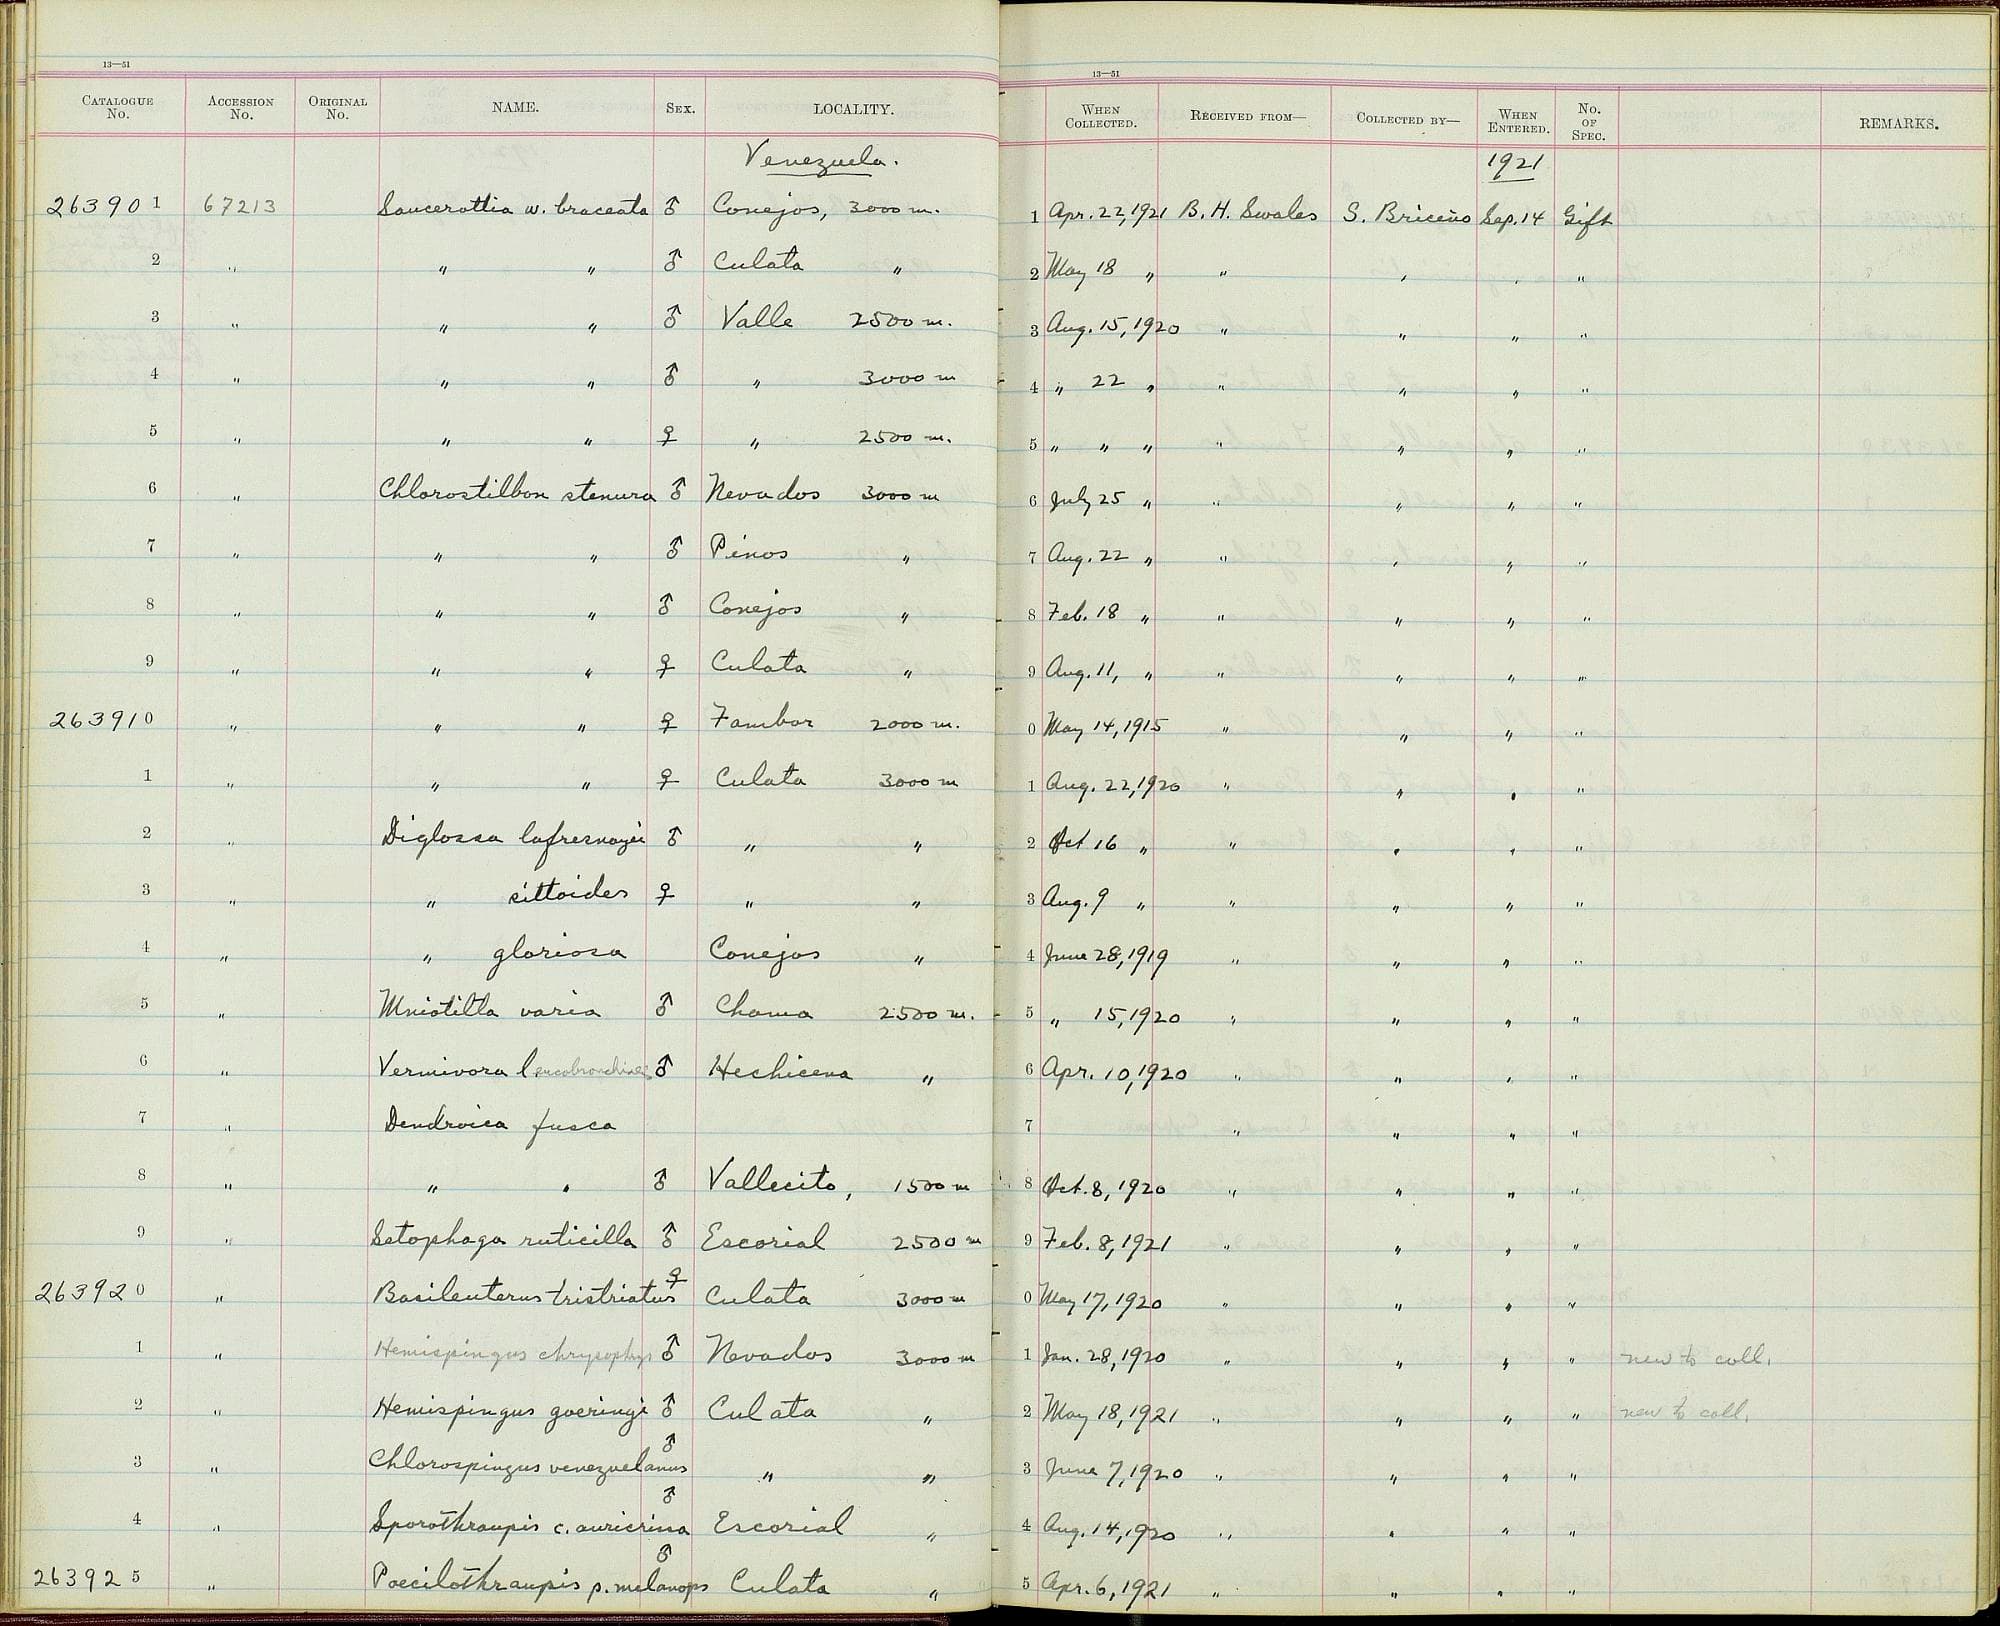 13—51
CATALOGUE No. ACCESSION No. ORIGINAL No. NAME. SEX. LOCALITY.
Venezuela.
263901 67213 Saucerottia w. braccata ♂ Conejos, 3000 m.
2 " " " ♂ Culata "
3 " " " ♂ Valle 2500 m.
4 " " " ♂ " 3000 m
5 " " " ♀ " 2500 m.
6 " Chlorostilbon stenura ♂ Nevados 3000 m
7 " " " ♂ Pinos "
8 " " " ♂ Conejos "
9 " " " ♀ Culata "
263910 " " " ♀ Tambor 2000 m.
1 " " " ♀ Culata 3000 m
2 " Diglossa lafresnayii ♂ " "
3 " " sittoides ♀ " "
4 " " gloriosa Conejos "
5 " Mniotilta varia ♂ Chama 2500 m.
6 " Vermivora leucobronchialis ♂ Hechicera "
7 " Dendroica fusca
8 " " " ♂ Vallecito, 1500 m
9 " Setophaga ruticilla ♂ Escorial 2500 m
263920 " Basileuterus tristriatus ♀ Culata 3000 m
1 " Hemispingus chrysophrys ♂ Nevados 3000 m
2 " Hemispingus goeringi ♂ Culata "
3 " Chlorospingus venezuelanus ♂ " "
4 " Sporothraupis c. auricrissa ♂ Escorial "
263925 " Poecilothraupis p. melanops ♂ Culata "
13—51
WHEN COLLECTED. RECEIVED FROM— COLLECTED BY— WHEN ENTERED. No. OF SPEC. REMARKS.
1921
1 Apr. 22, 1921 B. H. Swales S. Briceño Sep. 14 Gift
2 May 18 " " " " "
3 Aug. 15, 1920 " " " "
4 " 22 " " " " "
5 " " " " " " "
6 July 25 " " " " "
7 Aug. 22 " " " " "
8 Feb. 18 " " " " "
9 Aug. 11, " " " " "
0 May 14, 1915 " " " "
1 Aug. 22, 1920 " " " "
2 Oct 16 " " " " "
3 Aug. 9 " " " " "
4 June 28, 1919 " " " "
5 " 15, 1920 " " " "
6 Apr. 10, 1920 " " " "
7 " " " "
8 Oct. 8, 1920 " " " "
9 Feb. 8, 1921 " " " "
0 May 17, 1920 " " " "
1 Jan. 28, 1920 " " " " new to coll.
2 May 18, 1921 " " " " new to coll.
3 June 7, 1920 " " " "
4 Aug. 14, 1920 " " " "
5 Apr. 6, 1921 " " " "